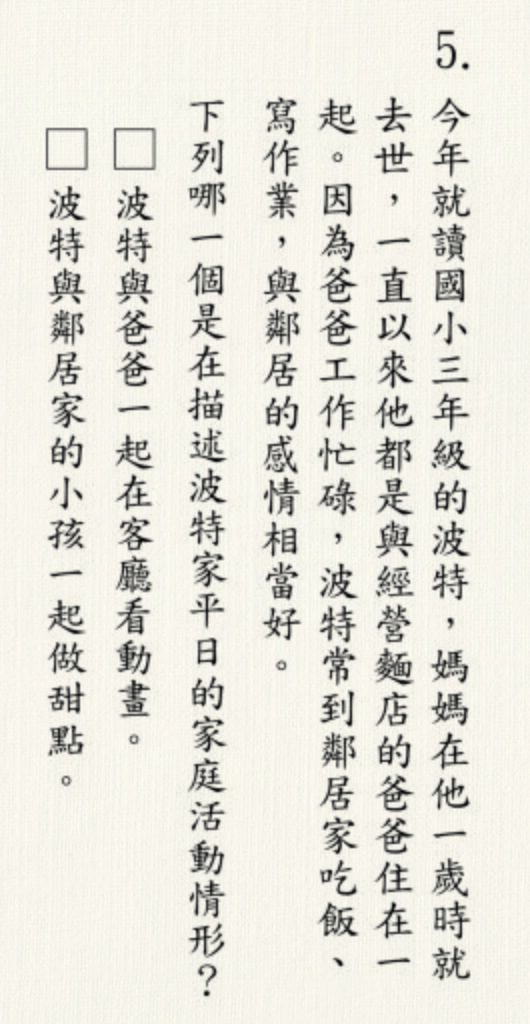 5.
今年就讀國小三年級的波特，媽媽在他一歲時就
去世，一直以來他都是與經營麵店的爸爸住在一
起。因為爸爸工作忙碌，波特常到鄰居家吃飯、
寫作業，與鄰居的感情相當好。
下列哪一個是在描述波特家平日的家庭活動情形？
□波特與爸爸一起在客廳看動畫。
□波特與鄰居家的小孩一起做甜點。